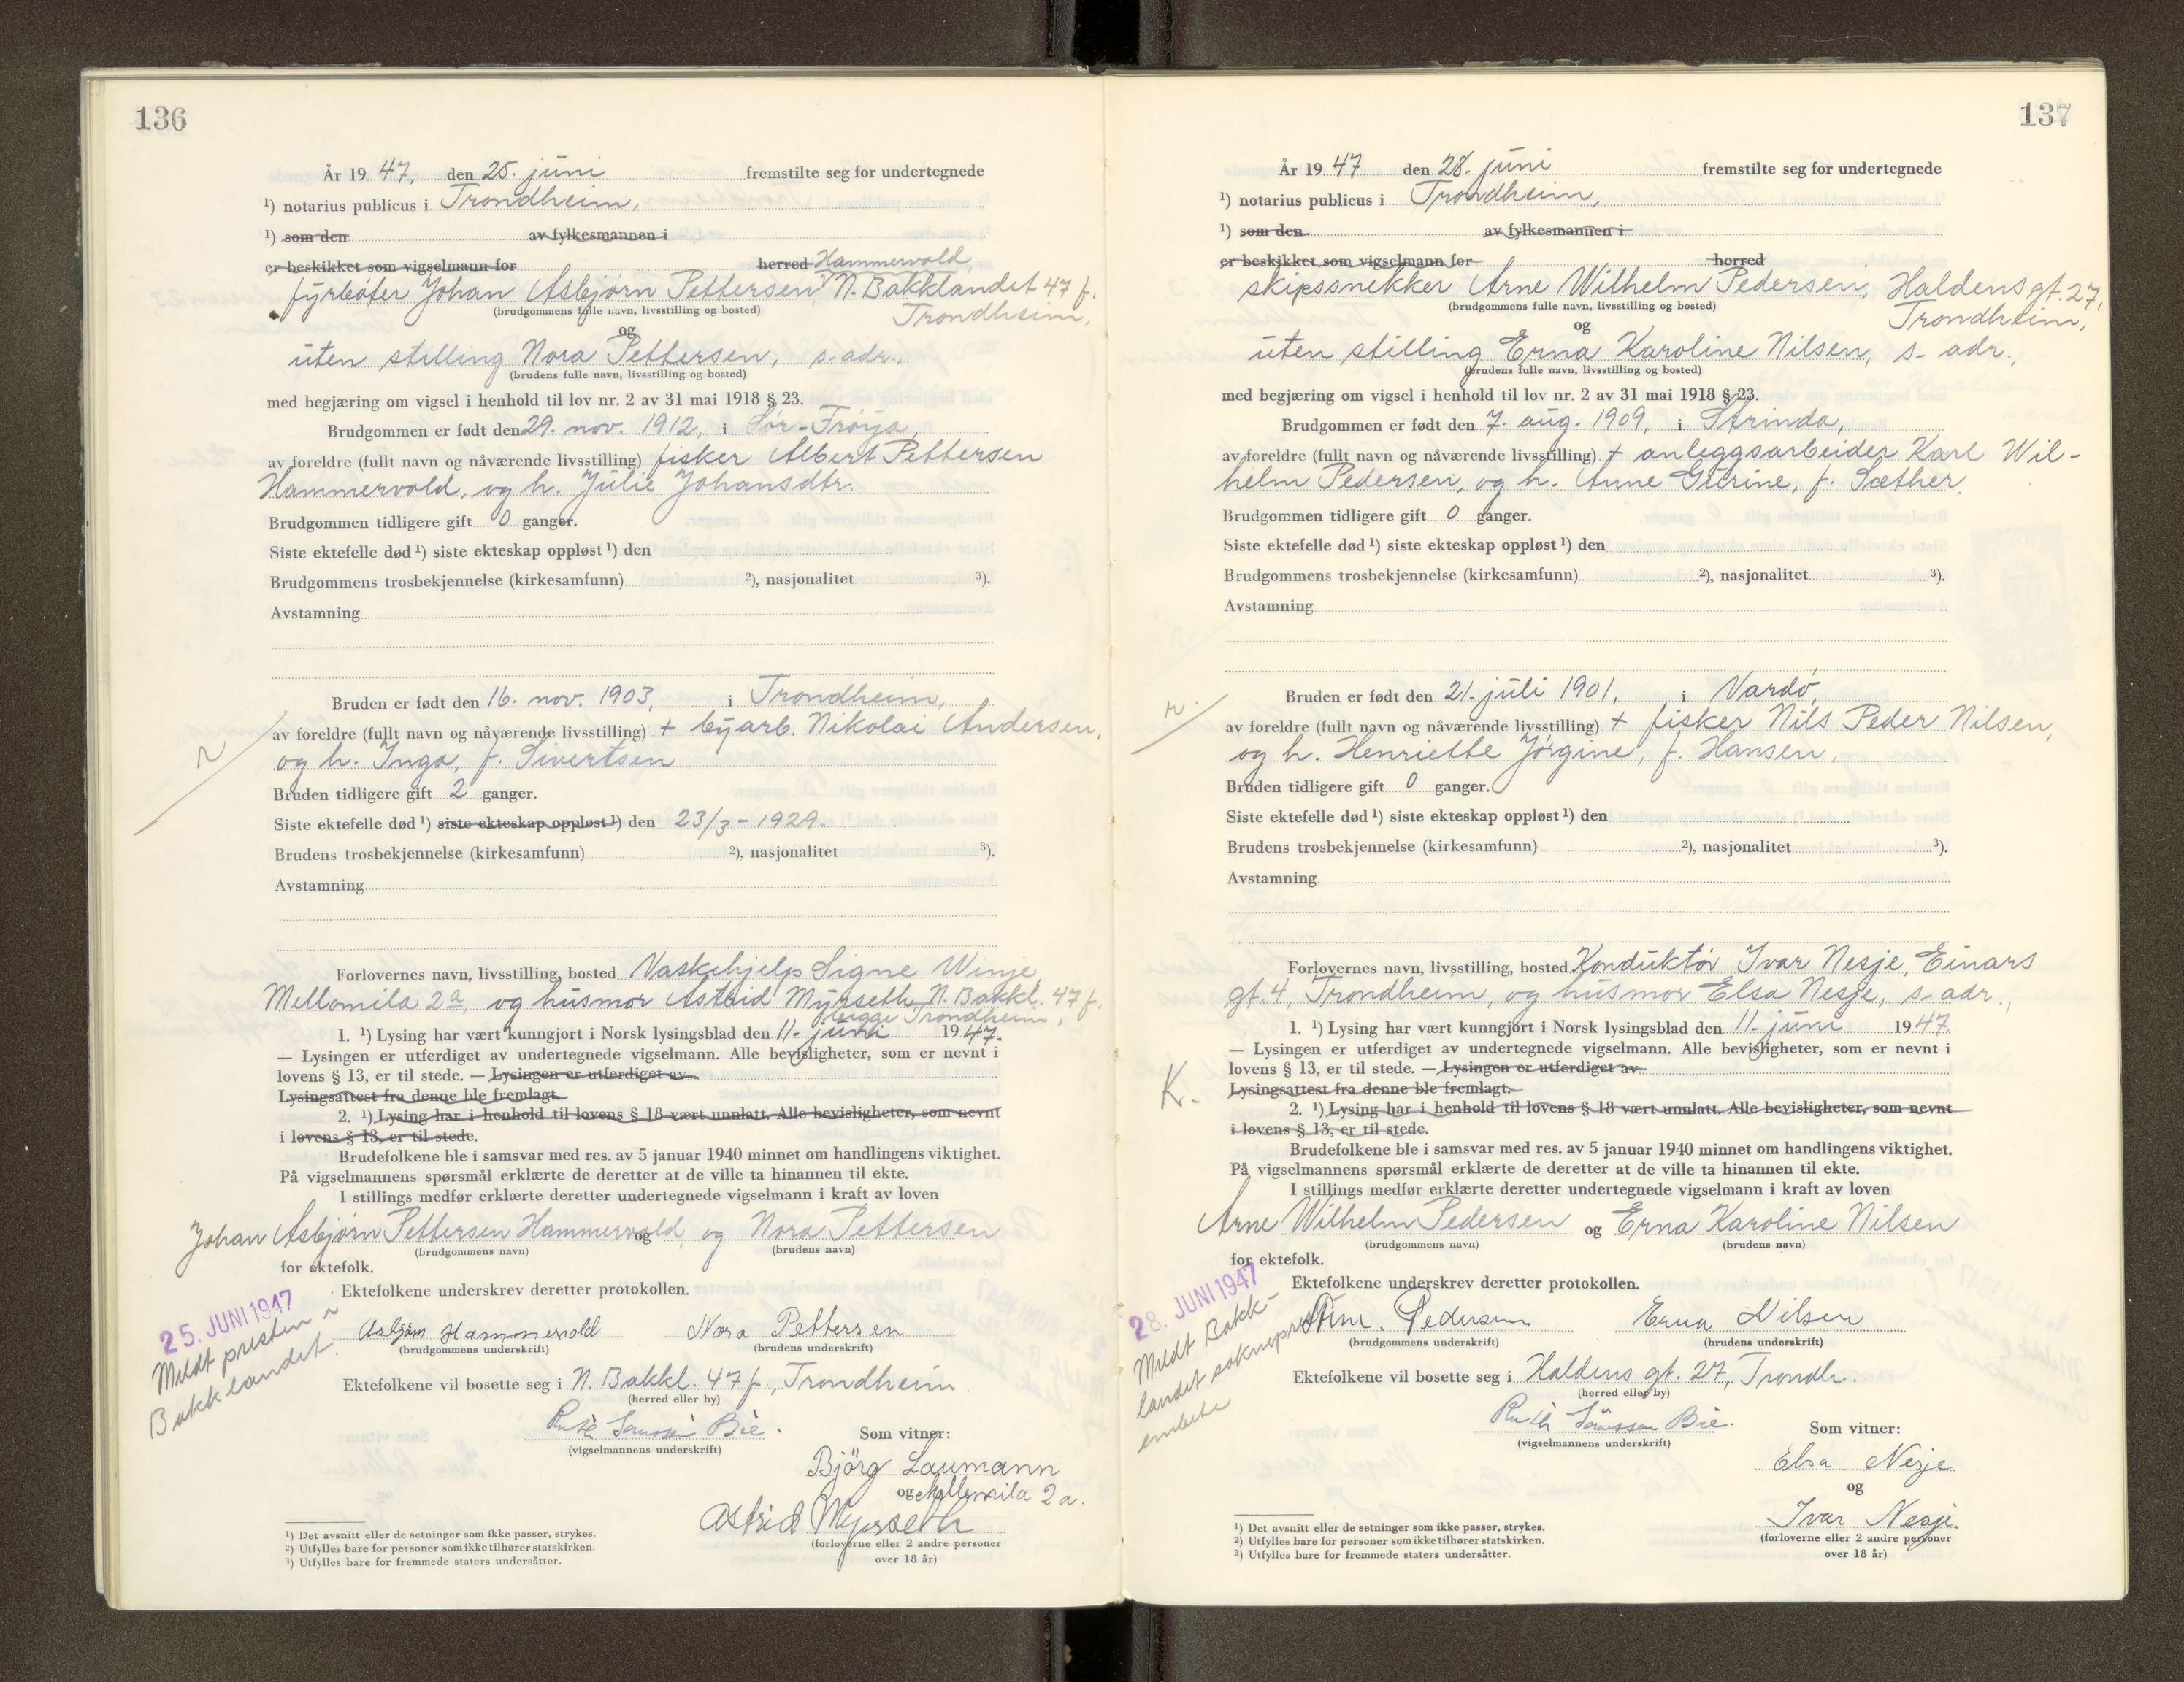 136
År 19 47, den 25. juni fremstilte seg for undertegnede
¹) notarius publicus i Trondheim,
¹) som den av fylkesmannen i
er beskikket som vigselmann for herred Hammervold,
fyrbøter Johan Asbjørn Pettersen N. Bakklandet 47 f.
(brudgommens fulle navn, livsstilling og bosted) Trondheim,
og
uten stilling Nora Pettersen, s. adr.,
(brudens fulle navn, livsstilling og bosted)
med begjæring om vigsel i henhold til lov nr. 2 av 31 mai 1918 § 23.
Brudgommen er født den 29. nov. 1912, i Sør-Frøya,
av foreldre (fullt navn og nåværende livsstilling) fisker Albert Pettersen
Hammervold, og h. Julie Johansdtr.
Brudgommen tidligere gift 0 ganger.
Siste ektefelle død ¹) siste ekteskap oppløst ¹) den
Brudgommens trosbekjennelse (kirkesamfunn) ²), nasjonalitet ³).
Avstamning
Bruden er født den 16. nov. 1903, i Trondheim,
av foreldre (fullt navn og nåværende livsstilling) + byarb. Nikolai Andersen,
og h. Inga, f. Sivertsen
Bruden tidligere gift 2 ganger.
Siste ektefelle død ¹) siste ekteskap oppløst ¹) den 23/3 - 1929.
Brudens trosbekjennelse (kirkesamfunn) ²), nasjonalitet ³).
Avstamning
Forlovernes navn, livsstilling, bosted Vaskehjelp Signe Winje
Mellomila 2a, og husmor Astrid Myrseth, N. Bakkl. 47 f.
begge Trondheim,
1. ¹) Lysing har vært kunngjort i Norsk lysingsblad den 11. juni 1947.
— Lysingen er utferdiget av undertegnede vigselmann. Alle bevisligheter, som er nevnt i
lovens § 13, er til stede. — Lysingen er utferdiget av
Lysingsattest fra denne ble fremlagt.
2. ¹) Lysing har i henhold til lovens § 18 vært unnlatt. Alle bevisligheter, som nevnt
i lovens § 13, er til stede.
Brudefolkene ble i samsvar med res. av 5 januar 1940 minnet om handlingens viktighet.
På vigselmannens spørsmål erklærte de deretter at de ville ta hinannen til ekte.
I stillings medfør erklærte deretter undertegnede vigselmann i kraft av loven
Johan Asbjørn Pettersen Hammervold og og Nora Pettersen
(brudgommens navn) (brudens navn)
for ektefolk.
Ektefolkene underskrev deretter protokollen.
25. JUNI 1947
Meldt presten i
Bakklandet.
Asbjørn Hammervold Nora Pettersen
(brudgommens underskrift) (brudens underskrift)
Ektefolkene vil bosette seg i N. Bakkl. 47 f., Trondheim.
(herred eller by)
(vigselmannens underskrift)
Som vitner:
Björg Laumann
og Mellemila 2a.
Astrid Myrseth
(forloverne eller 2 andre personer
over 18 år)
¹) Det avsnitt eller de setninger som ikke passer, strykes.
²) Utfylles bare for personer som ikke tilhører statskirken.
³) Utfylles bare for fremmede staters undersåtter.
137
År 19 47 den 28. juni fremstilte seg for undertegnede
¹) notarius publicus i Trondheim,
¹) som den av fylkesmannen i
er beskikket som vigselmann for herred
skipssnekker Arne Wilhelm Pedersen, Haldens gt. 27,
(brudgommens fulle navn, livsstilling og bosted) Trondheim,
og
uten stilling Erna Karoline Nilsen, s. adr.,
(brudens fulle navn, livsstilling og bosted)
med begjæring om vigsel i henhold til lov nr. 2 av 31 mai 1918 § 23.
Brudgommen er født den 7. aug. 1909, i Strinda,
av foreldre (fullt navn og nåværende livsstilling) + anleggsarbeider Karl Wil-
helm Pedersen, og h. Anne Gurine, f. Sæther.
Brudgommen tidligere gift 0 ganger.
Siste ektefelle død ¹) siste ekteskap oppløst ¹) den
Brudgommens trosbekjennelse (kirkesamfunn) ²), nasjonalitet ³).
Avstamning
Bruden er født den 21. juli 1901, i Vardø,
av foreldre (fullt navn og nåværende livsstilling) + fisker Nils Peder Nilsen,
og h. Henriette Jørgine, f. Hansen.
Bruden tidligere gift 0 ganger.
Siste ektefelle død ¹) siste ekteskap oppløst ¹) den
Brudens trosbekjennelse (kirkesamfunn) ²), nasjonalitet ³).
Avstamning
Forlovernes navn, livsstilling, bosted Konduktør Ivar Nesje, Einars
gt. 4, Trondheim, og husmor Elsa Nesje, s. adr.,
1. ¹) Lysing har vært kunngjort i Norsk lysingsblad den 11. juni 1947.
— Lysingen er utferdiget av undertegnede vigselmann. Alle bevisligheter, som er nevnt i
lovens § 13, er til stede. — Lysingen er utferdiget av
K.
Lysingsattest fra denne ble fremlagt.
2. ¹) Lysing har i henhold til lovens § 18 vært unnlatt. Alle bevisligheter, som nevnt
i lovens § 13, er til stede.
Brudefolkene ble i samsvar med res. av 5 januar 1940 minnet om handlingens viktighet.
På vigselmannens spørsmål erklærte de deretter at de ville ta hinannen til ekte.
I stillings medfør erklærte deretter undertegnede vigselmann i kraft av loven
Arne Wilhelm Pedersen og Erna Karoline Nilsen
(brudgommens navn) (brudens navn)
for ektefolk.
Ektefolkene underskrev deretter protokollen.
28. JUNI 1947
Meldt Bakk-
landet sokneprest-
embete
Arne Pedersen Erna Nilsen
(brudgommens underskrift) (brudens underskrift)
Ektefolkene vil bosette seg i Haldens gt. 27, Trondh.
(herred eller by)
(vigselmannens underskrift)
Som vitner:
Elsa Nesje
og
Ivar Nesje.
(forloverne eller 2 andre personer
over 18 år)
¹) Det avsnitt eller de setninger som ikke passer, strykes.
²) Utfylles bare for personer som ikke tilhører statskirken.
³) Utfylles bare for fremmede staters undersåtter.